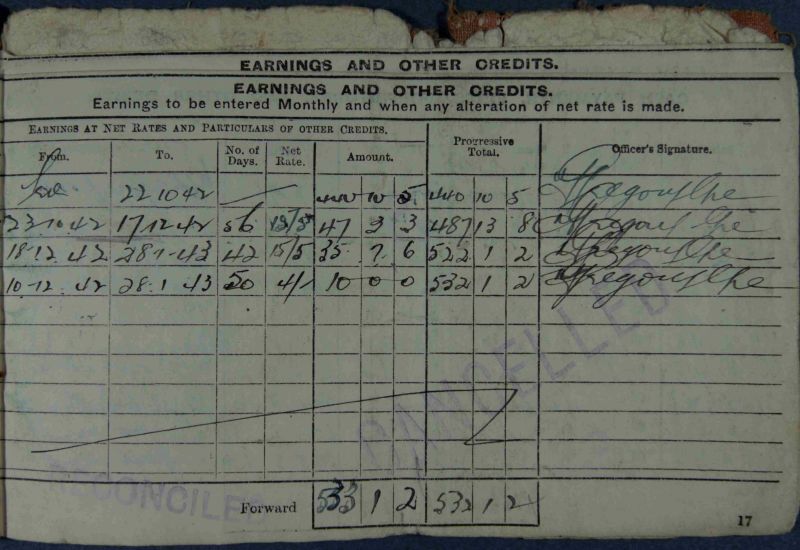 EARNINGS AND OTHER CREDITS.
EARNINGS AND OTHER CREDITS.
Earnings to be entered Monthly and when any alteration of net rate is made.
EARNINGS AT NET RATES AND PARTICULARS OF OTHER CREDITS.
From. To. No. of Days. Net Rate. Amount. Progressive Total. Officer's Signature.
22 10 42 440 10 5 440 10 5
23-10-42 17/12 42 56 47 3 3 487 13 8
18-12. 42 28-1-43 42 15/5 35 7 6 522 1 2
10-12. 42 28.1 43 50 4/- 10 0 0 532 1 2
CANCELLED
RECONCILED
Forward 533 1 2 532 1 2
17